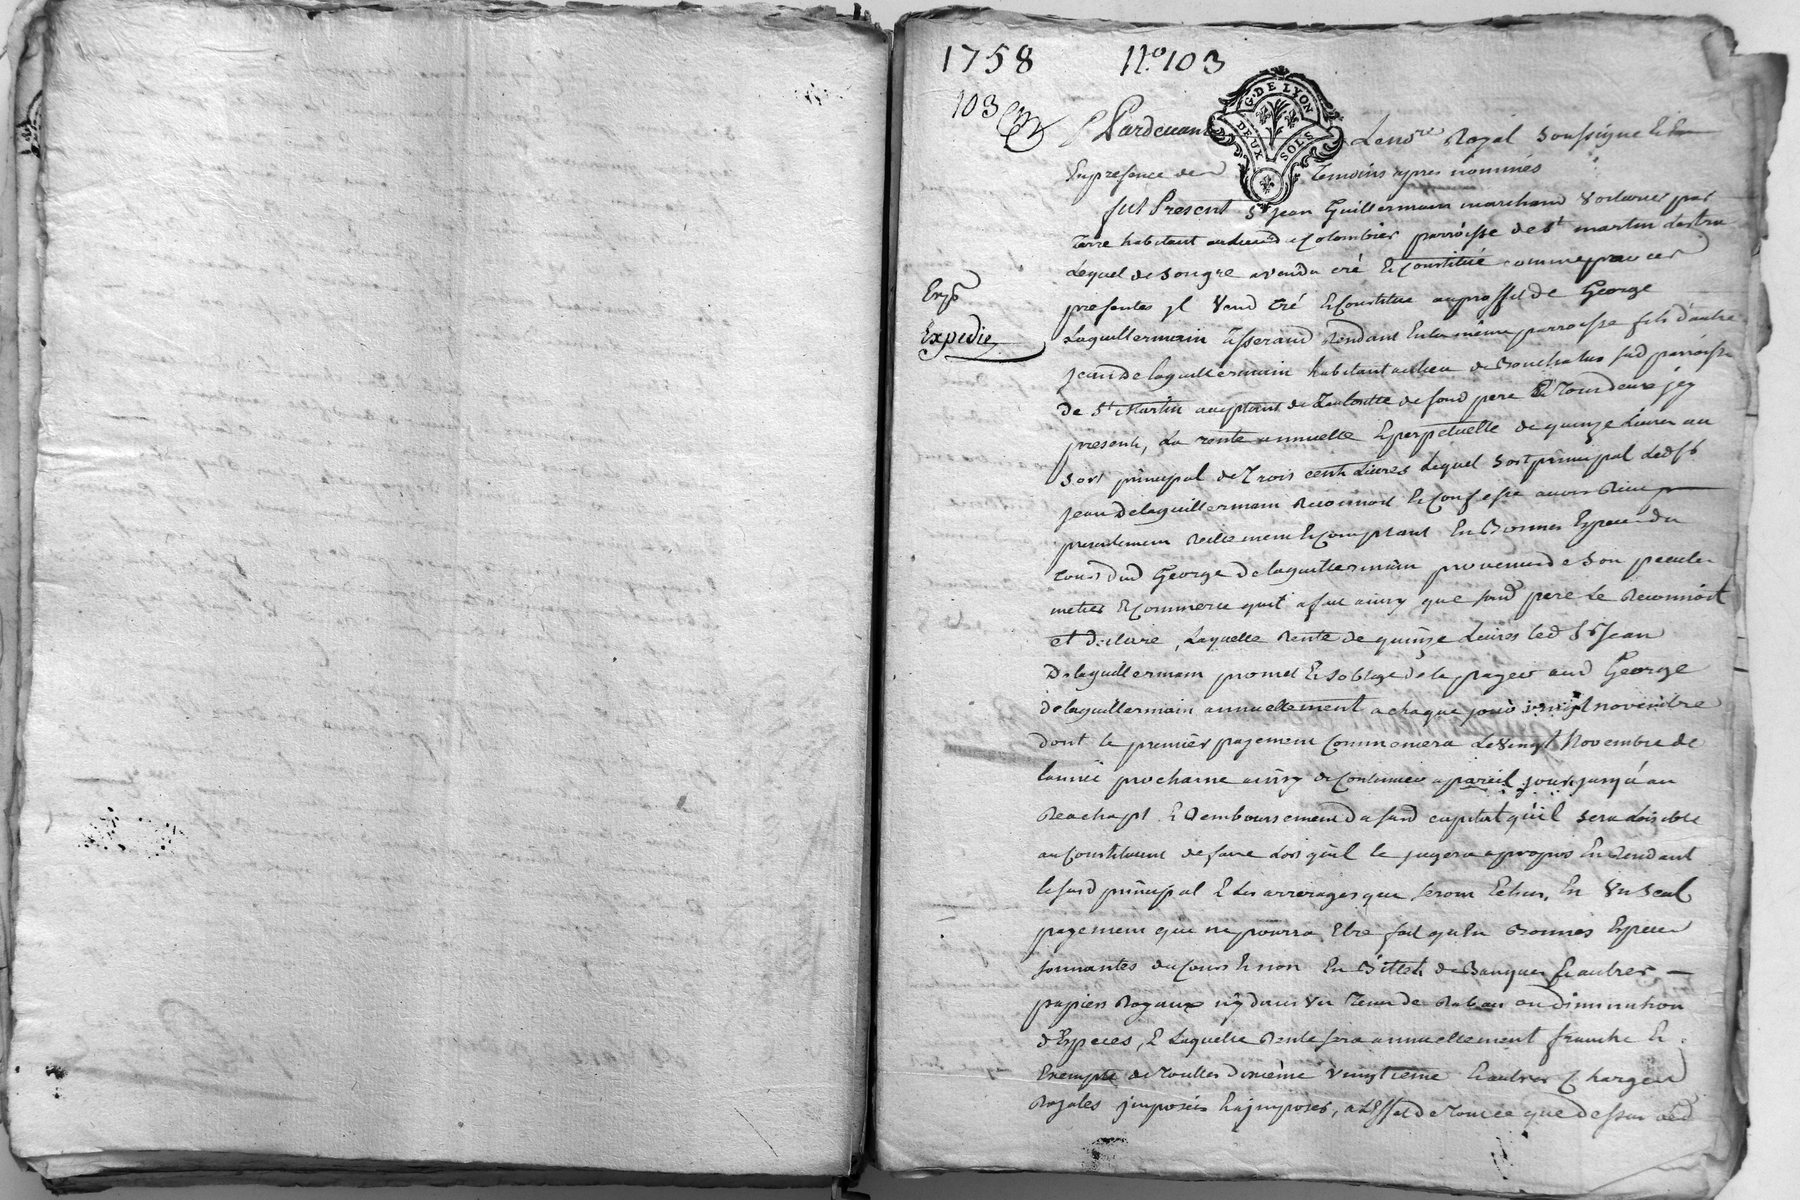 1758 N.o 103
103
G. DE LYON
DEUX SOLS
Pardevant Le no.re Royal soussigné Et
En presence des temoins apres nommés
fut Present S.r Jean Guillermain marchand voiturier par
terre habitant au lieu de Colombier parroisse de S.t martin Lestra
Lequel de son gré a vendu créé Et Constitué comme par ces
presentes il vend créé Et Constitue au proffit de George
Laguillermain tisserand Rendant En la même parroisse fils d'autre
Jean De laguillermain habitant au lieu de susd parroisse
De S.t Martin acceptant de Lautoritté de sond pere Et Tour deux jcy
presents, La rente annuelle Et perpetuelle de quinze Livres au
Sort principal de Trois cents Livres Lequel sort principal Led S.r
Jean Delaguillermain Reconnoit Et Confesse avoir Reçu
presentement Reellement Et Comptant En Bonnes Espece du
Cours dud George Delaguillermain provenus de son pecule
metier Et Commerce quil a fait ainsy que sond pere Le Reconnoit
et declare, Laquelle Rente de quinze Livres led S.r Jean
Delaguillermain promet Et soblige de la payer aud George
delaguillermain annuellement a chaque jour vingt novembre
dont le premier payement Commencera Le vingt Novembre de
lannée prochaine ainsy de Continuer a pareil jour jusqu'au
Reachapt Et Remboursement du susd capital qu'il sera Loisible
au Constituant de faire Lors qu'il le jugera a propos En Rendant
le susd principal Et Les arrerages que seront Echus, En Un Seul
payement que ne pourra Etre fait qu'En Bonnes Especes
sonnantes du Cours Et non En Billets de Banque Et autres
papiers Royaux ny dans Un Tems de Rabais ou Diminution
d'Especes, Et Laquelle Rente sera annuellement franche Et
Exempte de Touttes Dixième Vingtieme Et autres Charges
Royales jmposées Et a jmposer, a L'Effet de Tout ce que Dessus led
Expedié